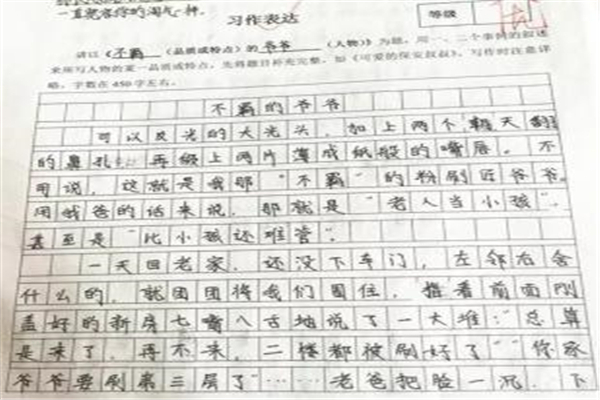 一直宠容你的淘气一样.
习作表达
等级
请以《不霸(品质或特点)的爷爷(人物)》为题，用一、二个事例的叙述
来描写人物的某一品质或特点，先将题目补充完整，如《可爱的保安叔叔》，写作时注意详
略，字数在450字左右。
不霸的爷爷
可以反光的大光头，加上两个朝天翻
的鼻孔，再缀上两片薄成纸般的嘴唇。不
用说，这就是我那“不霸”的粉刷匠爷爷。
用我爸的话来说，那就是“老人当小孩”，
甚至是“比小孩还难管”。
一天回老家，还没下车门，左邻右舍
什么的，就团团将我们围住，指着前面刚
盖好的新房七嘴八舌地说了一大堆：“总算
是来了，再不来，二楼都被刷好了”“你家
爷爷要刷第三层了”……老爸把脸一沉，下